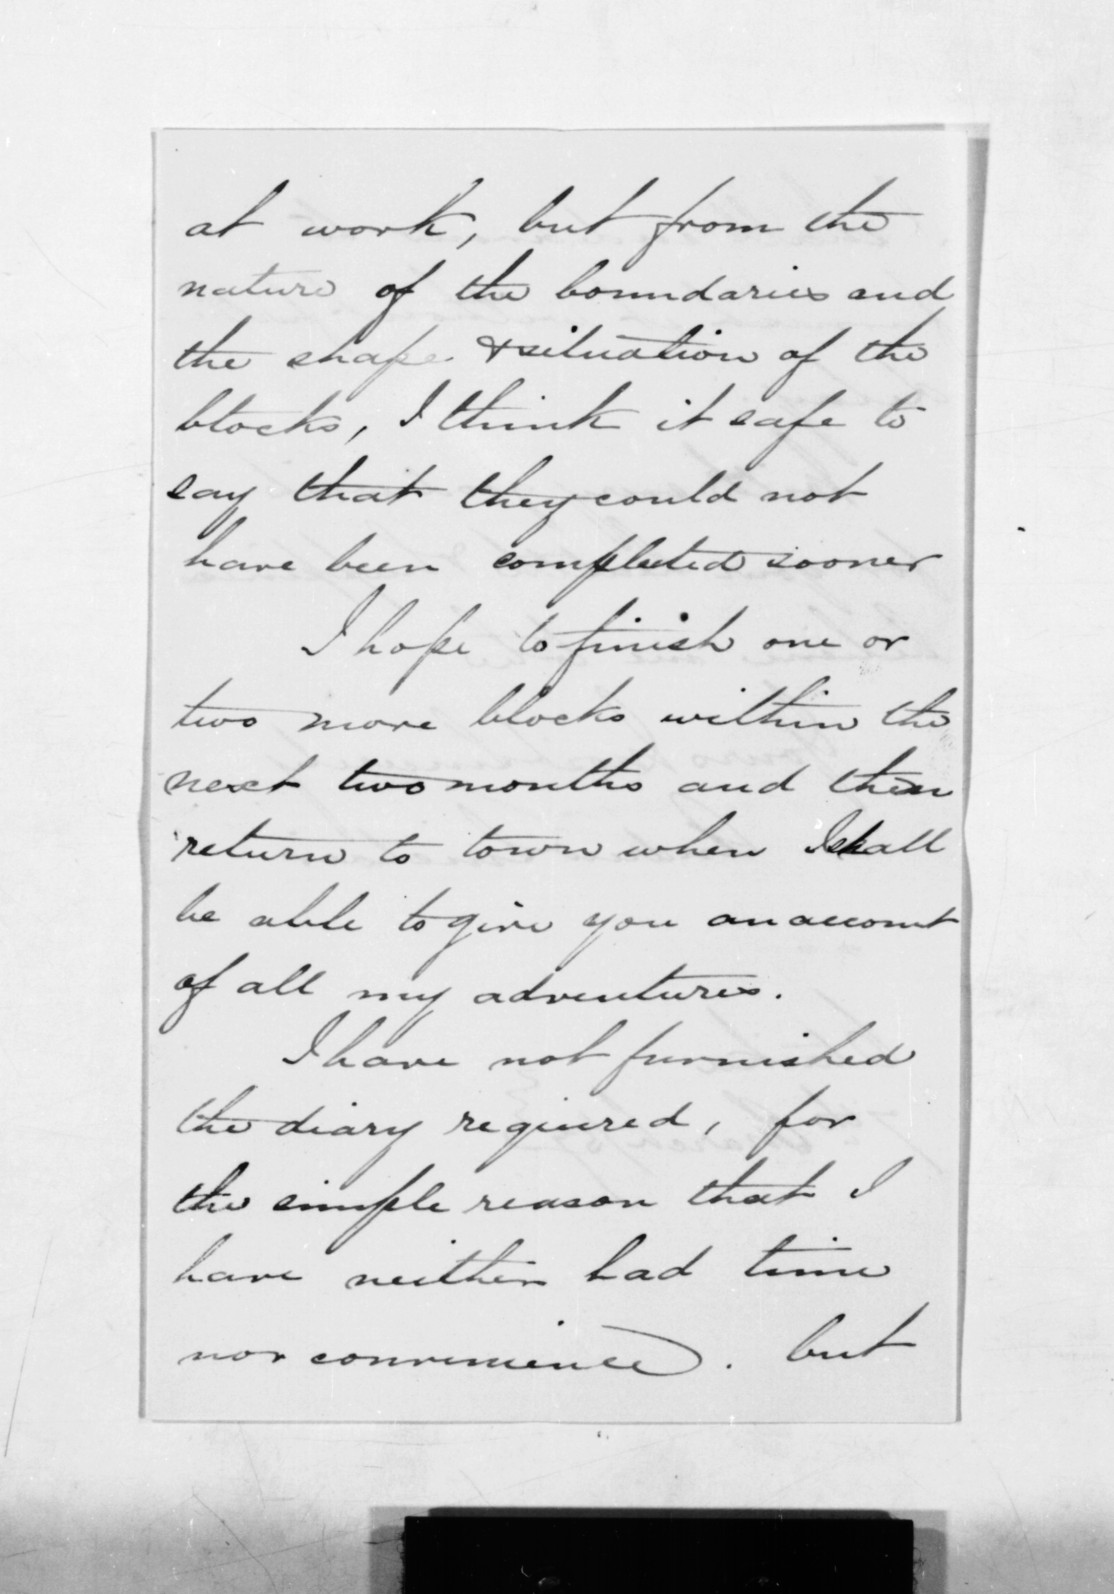 at work, but from the
nature of the boundaries and
the shape & situation of the
blocks, I think it safe to
say that they could not
have been completed sooner
I hope to finish one or
two more blocks within the
next two months and then
return to town when I shall
be able to give you an account
of all my adventures.
I have not furnished
the diary required, for
the simple reason that I
have neither had time
nor convenience. but